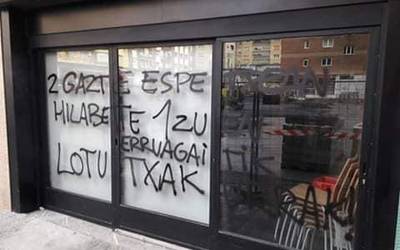 2 GAZTE ESPETXEAN
HILABETE 1 ZU
ERRUAGAITIK
LOTUTXAK